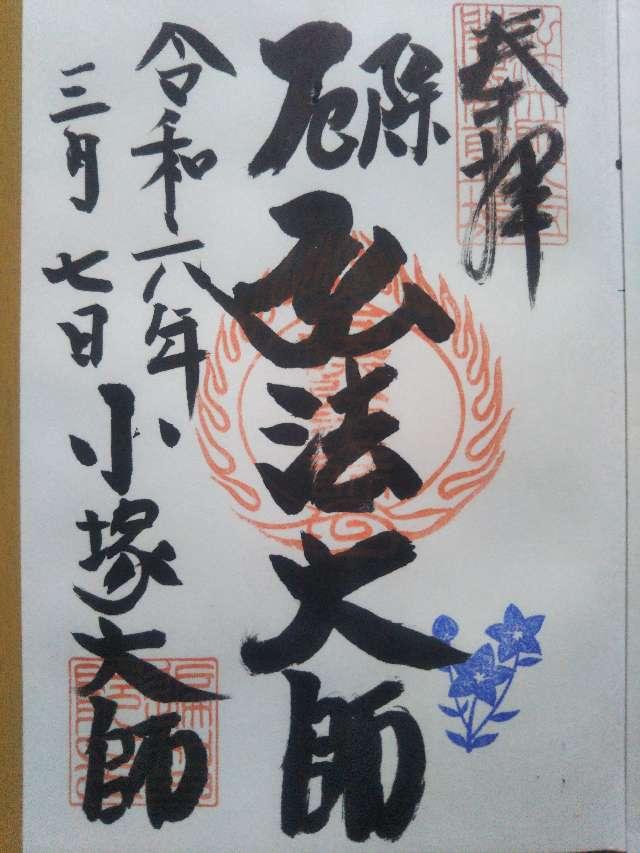 奉拝
除厄
弘法大師
令和六年
三月七日
小塚大師